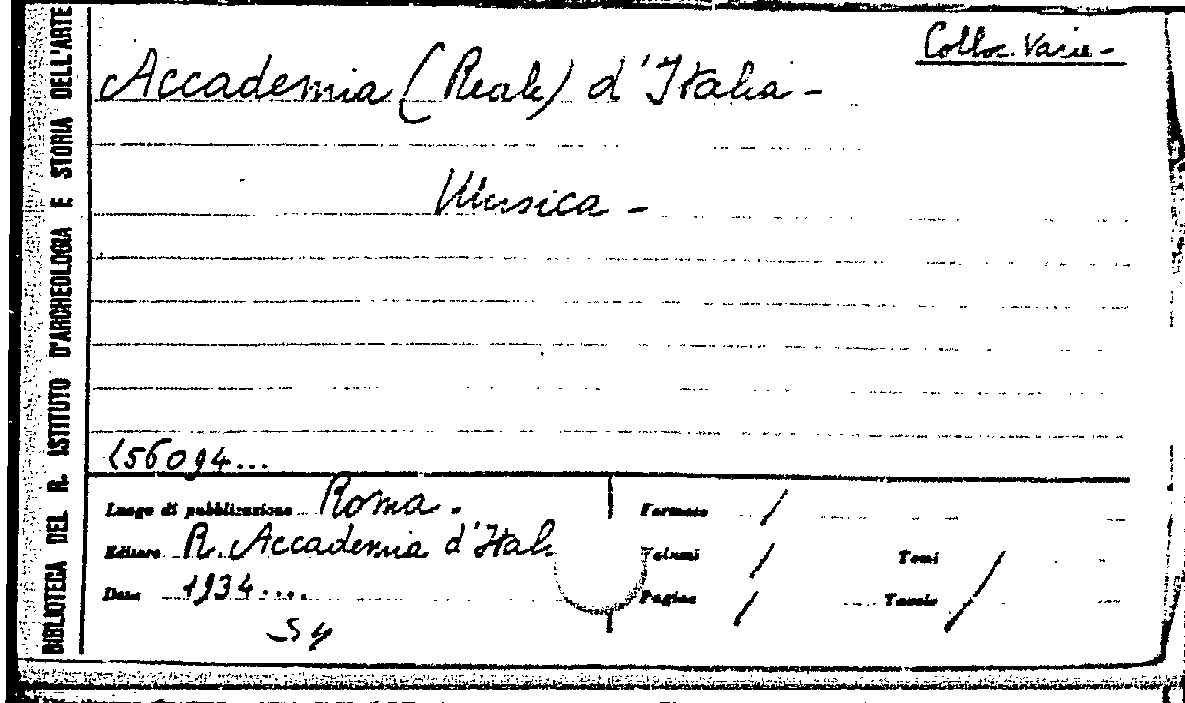 BIBLIOTECA DEL R. ISTITUTO D'ARCHEOLOGIA E STORIA DELL'ARTE
Colloc. Varie -
Accademia (Reale) d'Italia -
Musica -
156094...
Luogo di pubblicazione Roma.
Formato /
Editore R. Accademia d'Ital
Volumi / Tomi
Data 1934....
Pagine / Tavole /